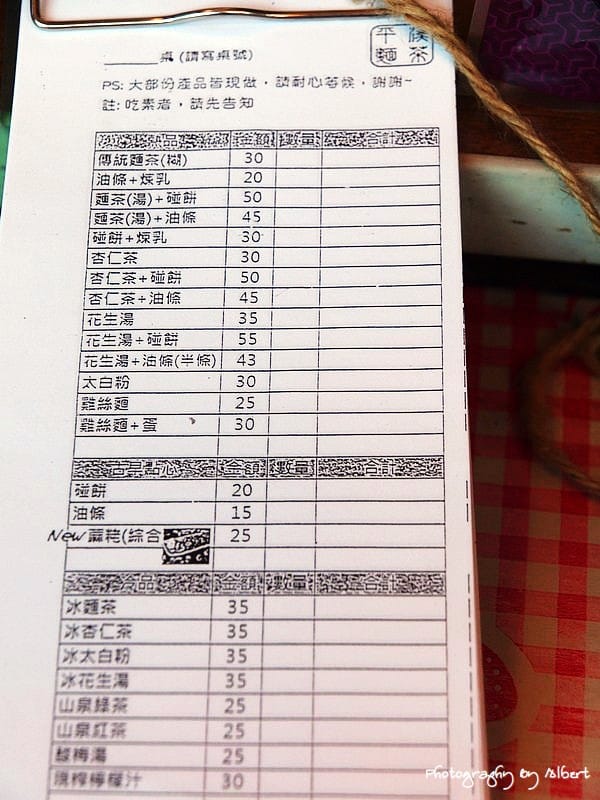 平候
麵茶
______桌 (請寫桌號)
PS: 大部份產品皆現做，請耐心等候，謝謝~
註: 吃素者，請先告知
熱品 金額 數量 合計
傳統麵茶(糊) 30
油條+煉乳 20
麵茶(湯)+碰餅 50
麵茶(湯)+油條 45
碰餅+煉乳 30
杏仁茶 30
杏仁茶+碰餅 50
杏仁茶+油條 45
花生湯 35
花生湯+碰餅 55
花生湯+油條(半條) 43
太白粉 30
雞絲麵 25
雞絲麵+蛋 30
古早點心 金額 數量 合計
碰餅 20
油條 15
New 蔴粩(綜合 25
冰品 金額 數量 合計
冰麵茶 35
冰杏仁茶 35
冰太白粉 35
冰花生湯 35
山泉綠茶 25
山泉紅茶 25
酸梅湯 25
現榨檸檬汁 30
Photography by Albert